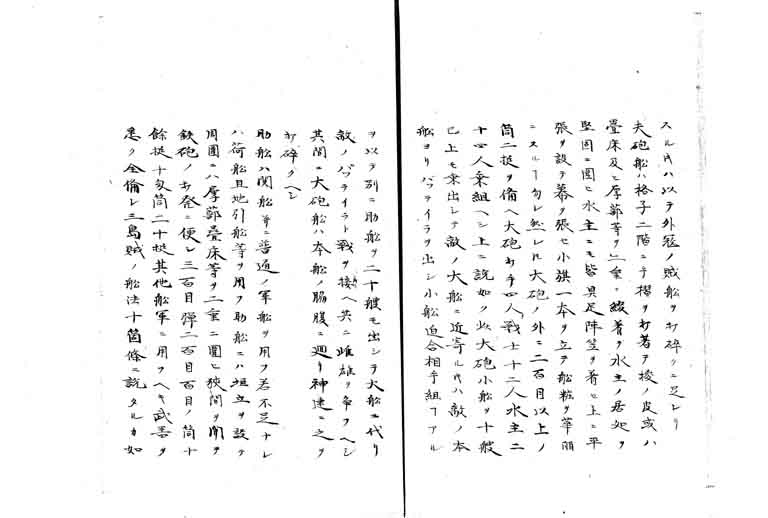 スル時ハ以テ外冦ノ賊船ヲ打碎クニ足レリ
夫砲船ハ格子二階ニテ楷ヲ打着テ棱ノ皮或ハ
疊床及ヒ厚蔀等ヲ二重ニ綴着ケ水主ノ居処ヲ
堅固ニ圍ヒ水主ニモ皆具足陣笠ヲ着セ上ニ平
張ヲ設テ幕ヲ張セ小旗一本ヲ立テ船粧ヲ華麗
ニスルヿ勿レ然レ𪜈大砲ノ外ニ二百目以上ノ
筒二挺ヲ備ヘ大砲打手四人戰士十二人水主二
十四人乗組ヘシ上ニ説如ク此大砲小船ヲ十艘
已上モ乗出シテ敵ノ大船ニ近寄ル時ハ敵ノ本
船ヨリバツテイラヲ出シ小船迫合相手組フアル
ヲ以テ別ニ助船ヲ二十艘モ出シテ大船ニ代リ
敵ノバツテイラト戰ヲ接ヘ共ニ雌雄ヲ争フヘシ
其間ニ大砲船ハ本船ノ脇腹ニ廻リ神速ニ之ヲ
打碎クヘシ
助船ハ関船等ニ普通ノ軍船ヲ用フ若不足ナレ
ハ荷船且地引船等ヲ用フ助船ニハ垣立ヲ設テ
周圍ニハ厚蔀疊床等ヲ二重ニ圍ヒ狹間ヲ開キ
鉄砲ノ打発ニ便シ三百目彈二百目百目ノ筒十
餘挺十匁筒二十挺其他船軍ニ用フヘキ武器ヲ
悉ク全備シ三島賊ノ船法十箇條ニ説タルカ如